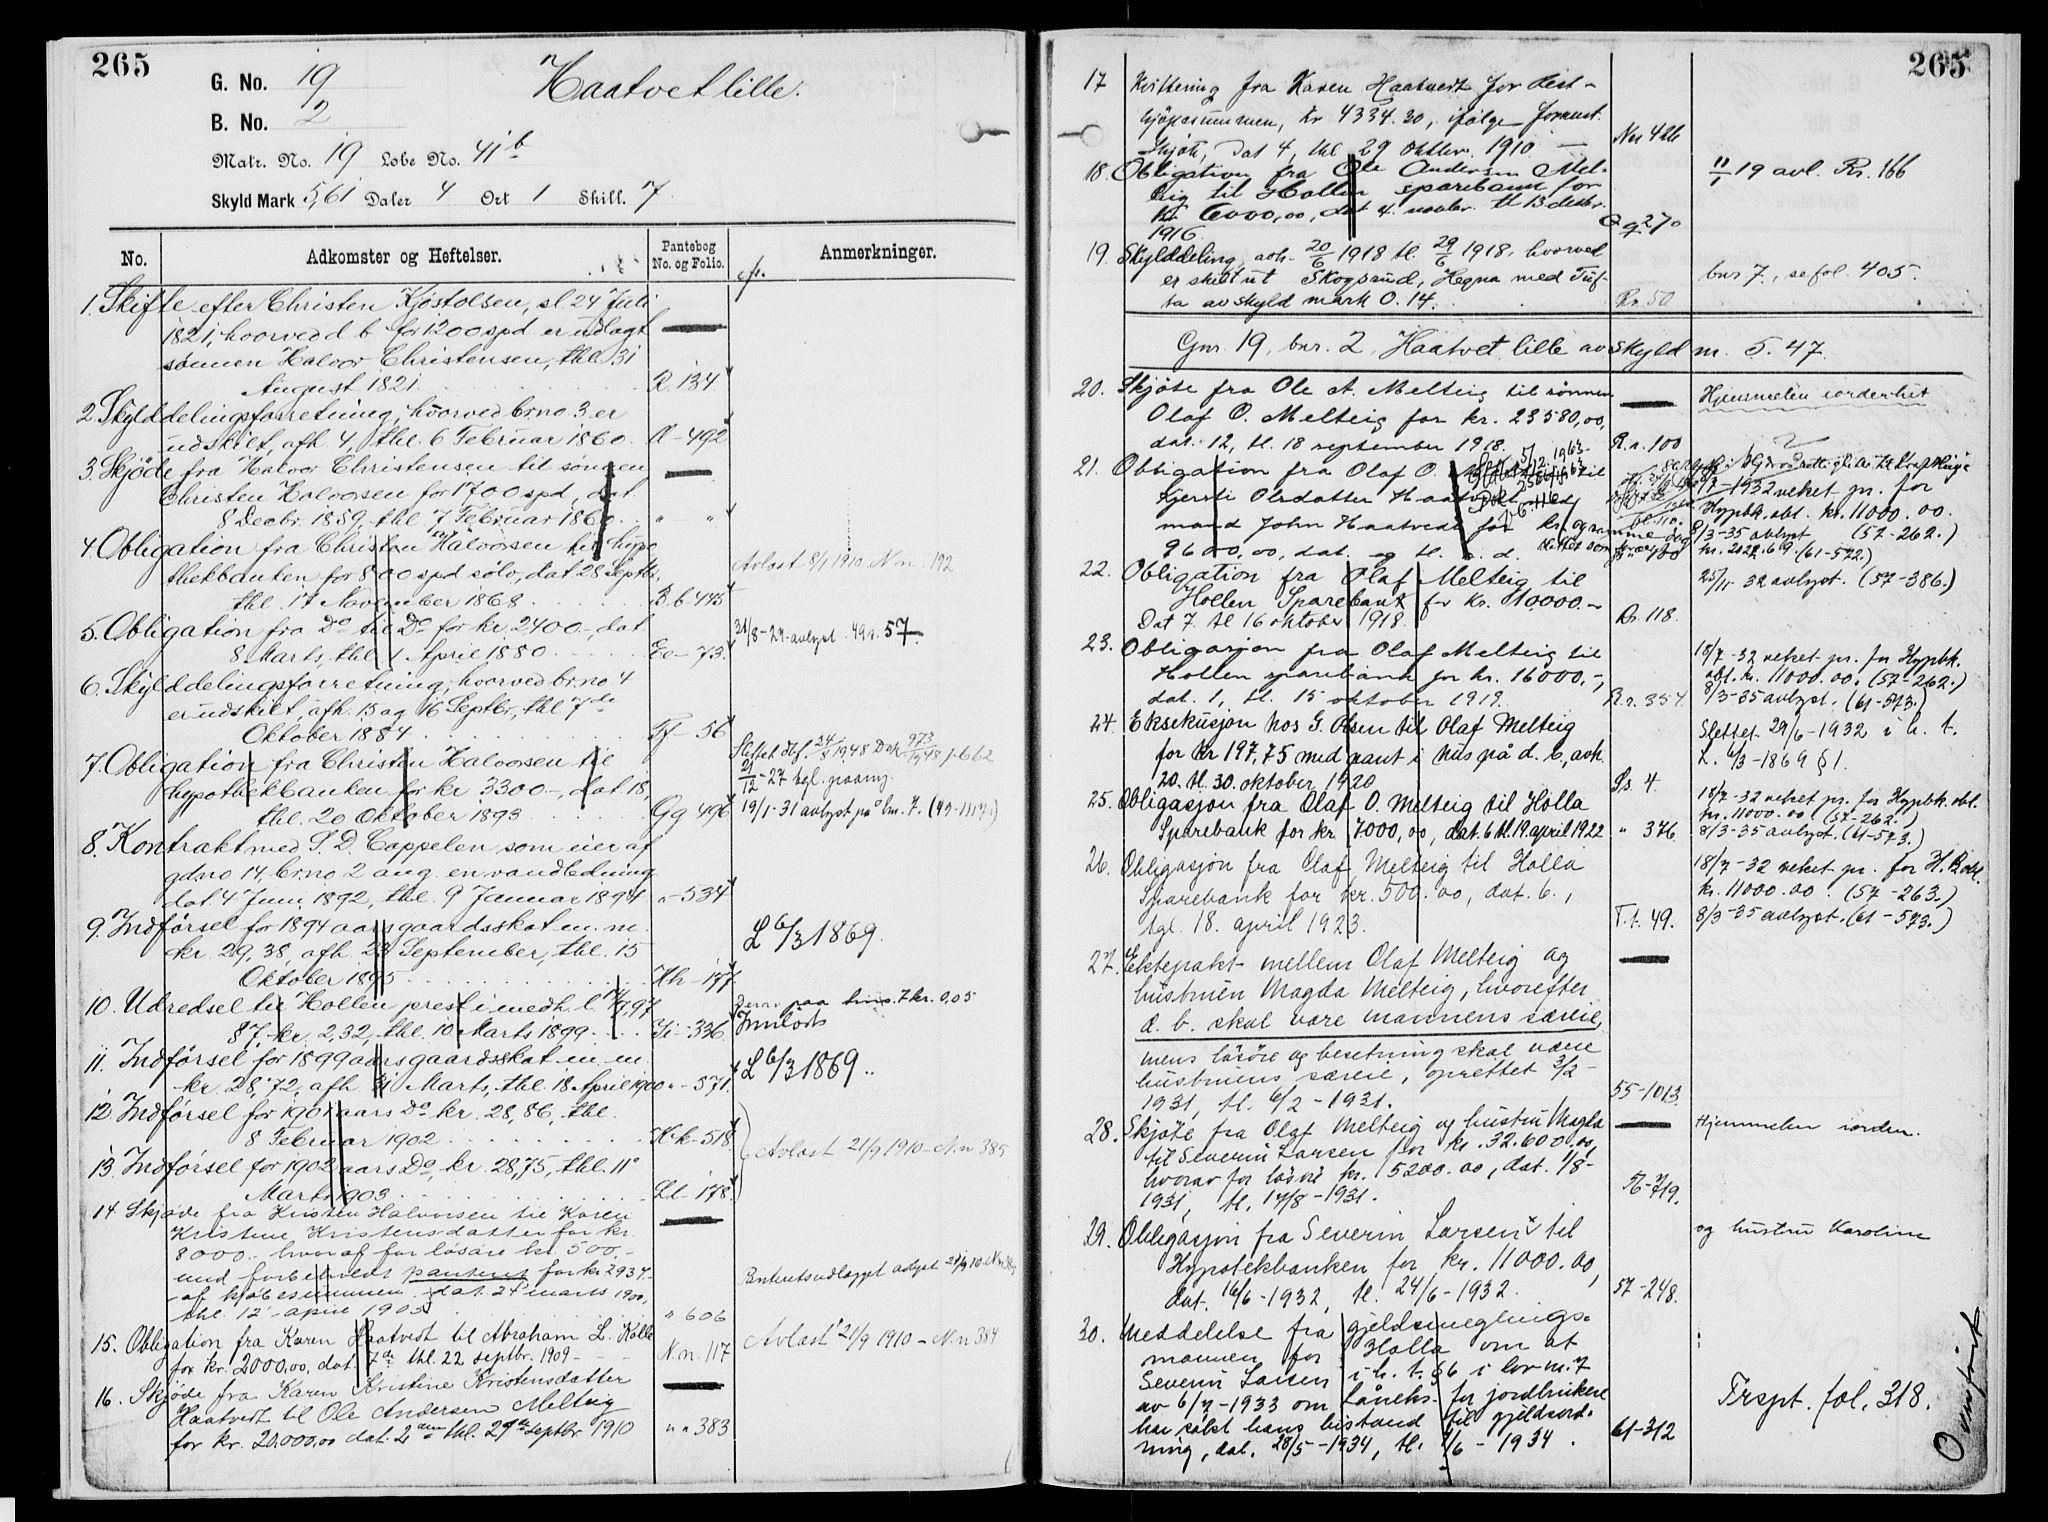 265
G. No. 19
Haatvet lille.
B. No. 2
Matr. No. 19 Lobe No. 41b
Skyld Mark 5,61 Daler 4 Ort 1 Skill. 7
No. Adkomster og Heftelser. Pantebog No. og Folio. Anmerkninger.
1. Skifte efter Christen Kjöstolsen, sl. 24 Juli
1821, hvorved d. b. for 1200 spd. er udlagt
sönnen Halvor Christensen, thl. 31
August 1821. R. 134
2. Skylddelingsforretning, hvorved br.no. 3 er
udskilt, afh. 4, thl. 6 Februar 1860. A - 492
3. Skjöde fra Halvor Christensen til sönnen
Christen Halvorsen for 1700 spd, dat.
8 Decbr. 1859, thl. 7 Februar 1860. " - "
4. Obligation fra Christen Halvorsen til hypo
thekbanken for 800 spd sölv, dat. 28 Septbr. Avlast 8/1 1910 N.n. 192
thl. 17 November 1868 B.b 445
5. Obligation fra Do til Do for kr. 2400.-, dat. 31/8-29 avlyst. 49 s. 57.
8 Marts, thl. 1 April 1880 Ee - 73.
6. Skylddelingsforretning, hvorved br.no 4
er udskilt, afh. 15 og 16 Septbr., thl. 7de
Oktober 1884 Ff - 56
7. Obligation fra Christen Halvorsen til Slettet dbf. 24/8 1948 Dok 973/1948 p. 662
hypothekbanken for kr 3300.-, dat. 18, 21/12-27 tgl. paany.
thl. 20 Oktober 1893 Gg 496 19/1-31 avlyst på bnr. 7.
8. Kontrakt med S. D. Cappelen som eier af
gdno 14, br.no 2 ang. en vandledning
dat. 4 Juni 1892, thl. 9 Januar 1894 " - 534
9. Indförsel for 1894 aars gaardsskat m. m.
kr. 29,38, afh. 23 September, thl. 15 L 6/3 1869.
Oktober 1895 Hh - 177
10. Udredsel til Hollen prest i medh. l. Derav paa bno. 7 kr. 0,05
87, kr. 2,32, thl. 10 Marts 1899. Ii - 336 Innlöst
11. Indförsel for 1899 aars gaardsskat m. m. L 6/3 1869.
kr. 28,72, afh. 31 Marts, thl. 18 April 1900 " - 571
12. Indförsel for 1901 aars Do kr. 28,86, thl.
8 Februar 1902 Kk - 518 Avlast 21/9 1910 - N.n 385
13. Indförsel for 1902 aars Do, kr. 28,75, thl. 11
Marts 1903 Ll 178
14 Skjöde fra Kristen Halvorsen til Karen
Kristine Kristensdatter for kr.
8000.- hvoraf for lösöre kr. 500.-
med forbeholdt panteret for kr 2937.-
af kjöbesummen. dat. 24 marts 1900,
thl. 12 april 1905 " 606
15. Obligation fra Karen Haatvedt til Abraham L. Kolle Avlast 21/9 1910 - N.n 384
for kr. 2000,00, dat. 7de thl. 22 septbr. 1909 - N.n. 117
16. Skjöde fra Karen Kristine Kristensdatter
Haatvedt til Ole Andersen Melteig
for kr. 20.000,00 dat. 2den thl. 29de septbr 1910 " " 383
265
17 Kvittering fra Karen Haatvedt for Rest-
kjöpesummen, kr 4334.30, ifölge forannt.
Skjöte, dat 4, thl 29 Oktbr. 1910 Nn 426
18. Obligation fra Ole Andersen Mel-
teig til Hollen sparebank for 11/1 19 avl. Rr. 166
kr 6000,00, dat 4. novbr. tl 13 desbr.
1916 Qq 270
19. Skylddeling, avh. 20/6 1918 tl. 29/6 1918, hvorved
er skilt ut Skogsrud, Hegna med Tuf- bnr 7, se fol. 405.
ta av skyld mark 0.14. Rr. 50
Gnr. 19, bnr. 2, Haatvet lille av skyld m. 5.47.
20. Skjöte fra Ole A. Melteig til sönnen Hjemmelen iorden
Olaf O. Melteig for kr. 23580,00,
dat. 12, tl. 18 september 1918. R.r. 100
21. Obligation fra Olaf O. til
Kjersti Olsdatter Haatvedt med 1932 veket pr. for
mand John Haatvedt for kr. Hypbk. obl. kr. 11000.00.
9600,00, dat. og tl. s. d. 8/3-35 avlyst (57-262.)
22. Obligation fra Olaf Melteig til 25/11-32 avlyst. (57-386.)
Hollen Sparebank for kr. 10000.-
Dat 7. tl 16 oktober 1918. Rr. 118.
23. Obligasjon fra Olaf Melteig til 18/7-32 veket pr. for Hypbk.
Hollen sparebank for kr. 16000.-, obl. kr. 11000.00. (57-262.)
dat. 1, tl. 15 oktober 1919. R.r. 354. 8/3-35 avlyst. (61-573.)
24. Eksekusjon hos G. Olsen til Olaf Melteig Slettet 29/6-1932 i h. t.
for kr 197,75 med pant i hus på d. b, avh. L. 6/3-1869 § 1.
20. tl. 30. oktober 1920 Ss. 4.
25. Obligasjon fra Olaf O. Melteig til Holla 18/7-32 veket pr. for Hypbk. obl.
Sparebank for kr. 7000,00, dat. 6 tl. 19. april 1922 " 376. kr. 11000.00 (57-262.)
8/3-35 avlyst. (61-573.)
26. Obligasjon fra Olaf Melteig til Holla 18/7-32 veket pr. for H.B. obl.
Sparebank for kr. 500.00, dat. 6., kr. 11000.00. (57-263.)
tgl. 18. april 1923. T.t. 49. 8/3-35 avlyst. (61-573.)
27. Ektepakt mellem Olaf Melteig og
hustruen Magda Melteig, hvorefter
d. b. skal være mannens særeie,
mens lösöre og besetning skal være
hustruens særeie, oprettet 3/2-
1931, tl. 6/2-1931. 55-1013.
28. Skjöte fra Olaf Melteig og hustru Magda Hjemmelen iorden.
til Severin Larsen for kr. 32.600.00,
hvorav for lösöre kr. 5200.00, dat. 1/8-
1931, tl. 17/8-1931. 719.
29. Obligasjon fra Severin Larsen x til og hustru Karoline
Hypotekbanken for kr. 11000.00,
dat. 16/6-1932, tl. 24/6-1932. 57-248.
30. Meddelelse fra gjeldsmeglings-
mannen for Holla om at
Severin Larsen i h. t. § 6 i lov nr. 7
av 6/7-1933 om Låneks. for jordbrukere Trspt. fol. 318.
har sökt hans bistand til gjeldsord-
ning, dat. 28/5-1934, tl. /6-1934. 61-312
Overfört